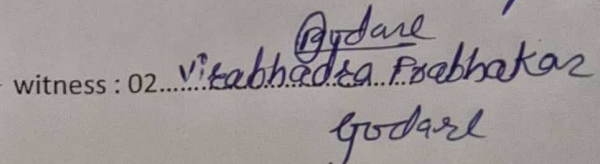 witness : 02......Virabhadra Prabhakar
Godare